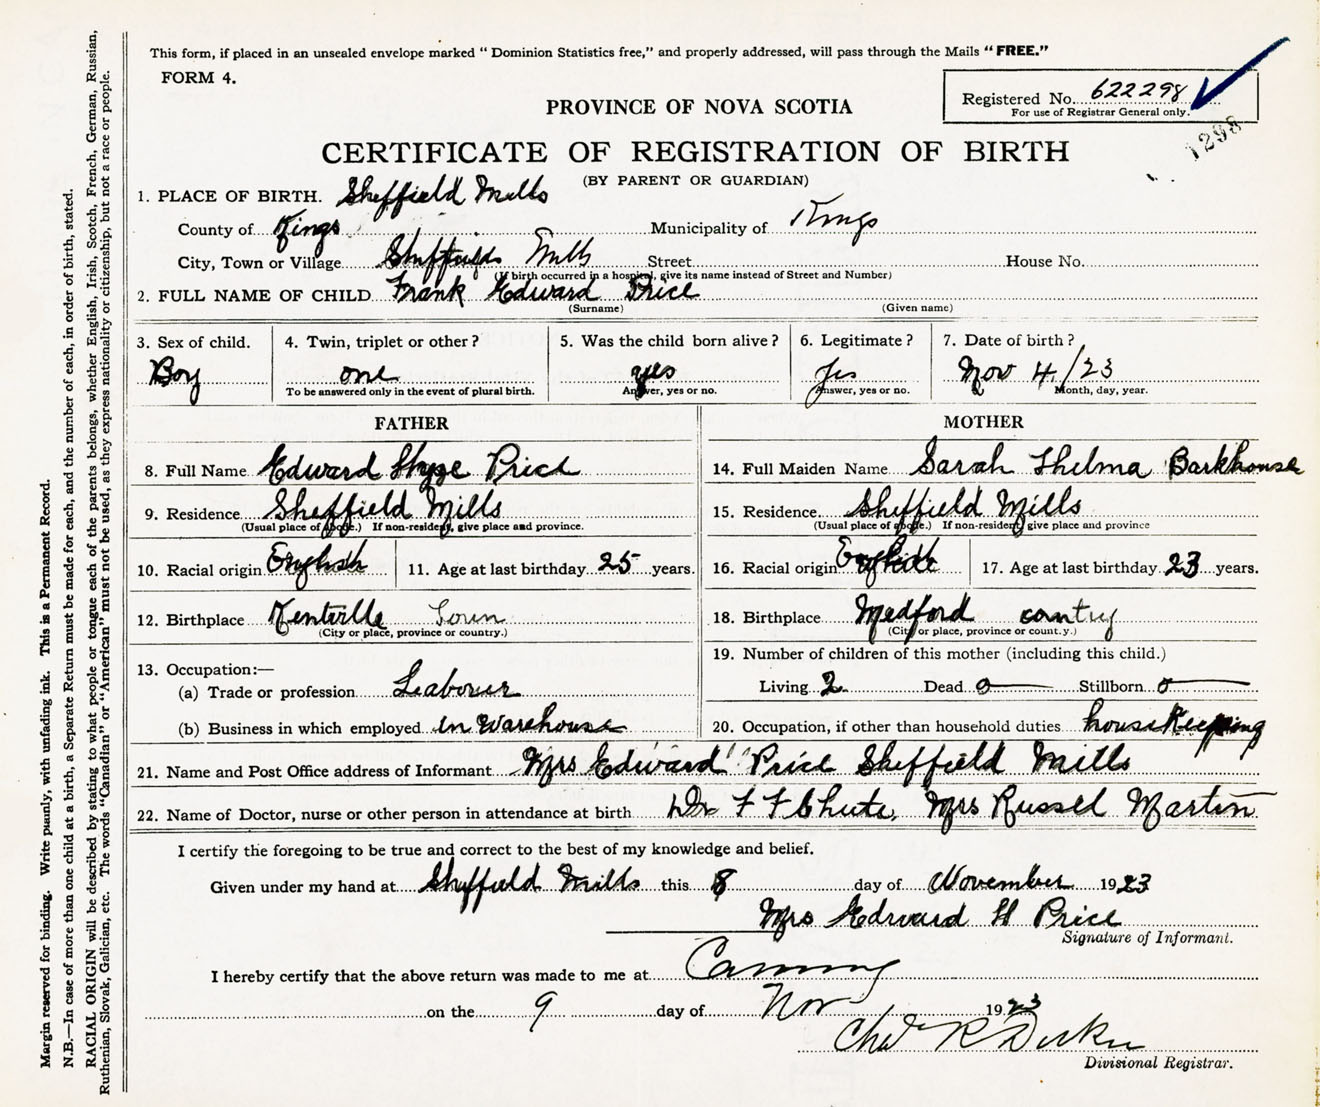 This form, if placed in an unsealed envelope marked “Dominion Statistics free,” and properly addressed, will pass through the Mails “FREE.”
FORM 4.
Registered No. 622298
For use of Registrar General only.
1298
PROVINCE OF NOVA SCOTIA
CERTIFICATE OF REGISTRATION OF BIRTH
(BY PARENT OR GUARDIAN)
1. PLACE OF BIRTH. Sheffield Mills
County of Kings Municipality of Kings
City, Town or Village Sheffield Mills Street House No.
(If birth occurred in a hospital, give its name instead of Street and Number)
2. FULL NAME OF CHILD Frank Edward Price
(Surname) (Given name)
3. Sex of child. 4. Twin, triplet or other? 5. Was the child born alive? 6. Legitimate? 7. Date of birth?
Boy one yes yes Nov 4/23
To be answered only in the event of plural birth. Answer, yes or no. Answer, yes or no. Month, day, year.
FATHER MOTHER
8. Full Name Edward Price 14. Full Maiden Name Sarah Thelma Barkhouse
9. Residence Sheffield Mills 15. Residence. Sheffield Mills
(Usual place of abode.) If non-resident, give place and province. (Usual place of abode.) If non-resident, give place and province
10. Racial origin English 11. Age at last birthday 25 years. 16. Racial origin English 17. Age at last birthday 23 years.
12. Birthplace Kentville Town 18. Birthplace Medford country
(City or place, province or country.) (City or place, province or county.)
13. Occupation:— 19. Number of children of this mother (including this child.)
(a) Trade or profession Laborer Living 2 Dead 0 Stillborn 0
(b) Business in which employed in Warehouse 20. Occupation, if other than household duties housekeeping
21. Name and Post Office address of Informant Mrs Edward Price Sheffield Mills
22. Name of Doctor, nurse or other person in attendance at birth Dr F F Chute, Mrs Russel Martin
I certify the foregoing to be true and correct to the best of my knowledge and belief.
Given under my hand at Sheffield Mills this 8 day of November 1923
Mrs Edward H Price
Signature of Informant.
I hereby certify that the above return was made to me at Canning
on the 9 day of Nov 1923
Chas R
Divisional Registrar.
Margin reserved for binding. Write plainly, with unfading ink. This is a Permanent Record.
N.B.—In case of more than one child at a birth, a Separate Return must be made for each, and the number of each, in order of birth, stated.
RACIAL ORIGIN will be described by stating to what people or tongue each of the parents belongs, whether English, Irish, Scotch, French, German, Russian,
Ruthenian, Slovak, Galician, etc. The words “Canadian” or “American” must not be used, as they express nationality or citizenship, but not a race or people.